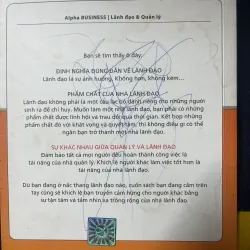 Alpha BUSINESS | Lãnh đạo & Quản lý
Bạn sẽ tìm thấy ở đây:
ĐỊNH NGHĨA ĐÚNG ĐẮN VỀ LÃNH ĐẠO
Lãnh đạo là sự ảnh hưởng. Không hơn, không kém...
PHẨM CHẤT CỦA NHÀ LÃNH ĐẠO
Lãnh đạo không phải là một câu lạc bộ dành riêng cho những người
sinh ra để chỉ huy. Muốn làm một nhà lãnh đạo, bạn phải có những phẩm
chất được lĩnh hội và trau dồi qua thời gian. Kết hợp những
phẩm chất đó với khát vọng và quyết tâm, thì không điều gì có thể
ngăn bạn trở thành một nhà lãnh đạo.
SỰ KHÁC NHAU GIỮA QUẢN LÝ VÀ LÃNH ĐẠO
Đảm bảo tất cả mọi người đều hoàn thành công việc là
tài năng của nhà quản lý. Khích lệ người khác làm việc tốt hơn là
tài năng của nhà lãnh đạo.
Dù bạn đang ở nấc thang lãnh đạo nào, cuốn sách bạn đang cầm trên
tay cũng sẽ khích lệ bạn truyền cảm hứng cho người khác bằng
sự tận tâm và tầm nhìn xa trông rộng của nhà lãnh đạo.